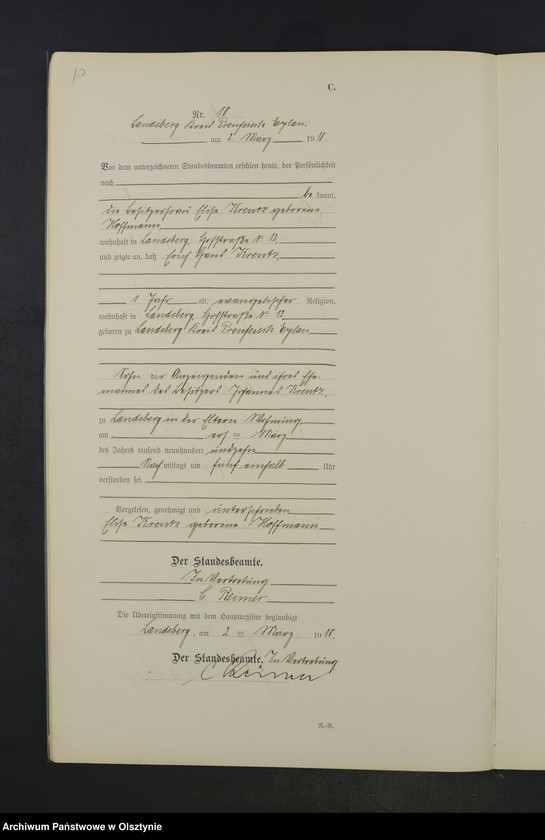 10
C.
Nr. 18
Landsberg Kreis Preußisch Eylau
, am 2. März 1918.
Vor dem unterzeichneten Standesbeamten erschien heute, der Persönlichkeit
nach
be kannt,
die Besitzerfrau Elise Krentz geborene
Hoffmann
wohnhaft in Landsberg, Hofstraße Nr. 12,
und zeigte an, daß Erich Hans Krentz,
1 Jahr alt, evangelischer Religion,
wohnhaft in Landsberg, Hofstraße Nr. 12,
geboren zu Landsberg Kreis Preußisch Eylau
Sohn der Anzeigenden und ihres Ehe-
mannes des Besitzers Johannes Krentz,
zu Landsberg in der Eltern Wohnung,
am ersten März
des Jahres tausend neunhundert
Nach mittags um fünf einhalb Uhr
verstorben sei.
Vorgelesen, genehmigt und unterschrieben
Elise Krentz geborene Hoffmann
Der Standesbeamte.
In Vertretung
C Reimer
Die Übereinstimmung mit dem Hauptregister beglaubigt
Landsberg, am 2 ten März 1918.
Der Standesbeamte. In Vertretung
C Reimer
R.-R.
Archiwum Państwowe w Olsztynie